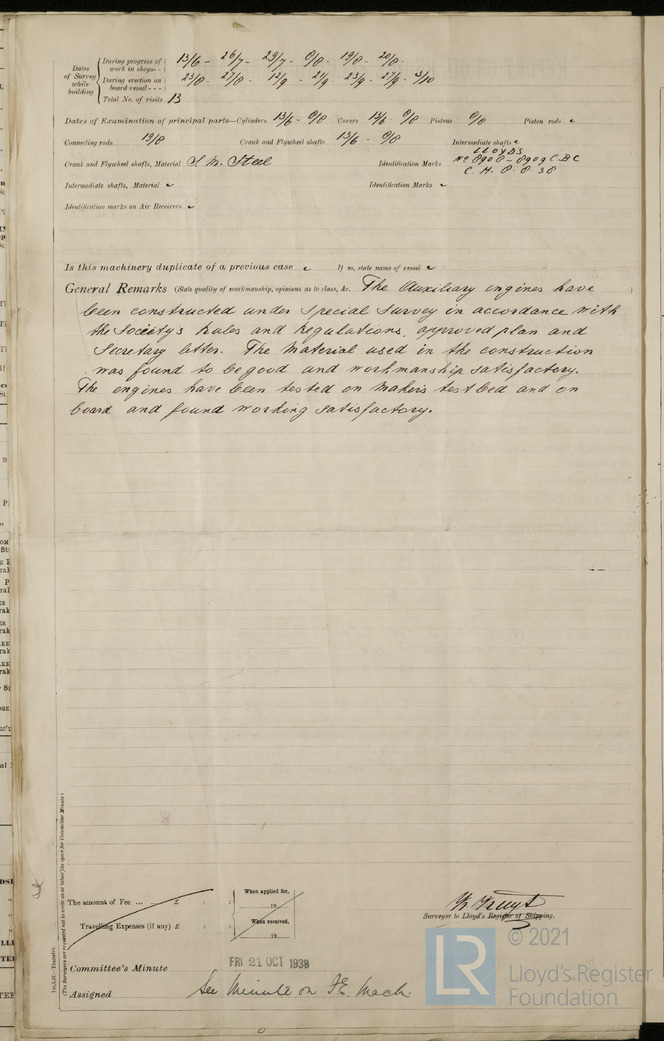 Dates of Survey while building
During progress of work in shops - - 13/6 - 26/7 - 29/7 - 8/8 - 19/8 - 20/8 -
During erection on board vessel - - - 23/8 - 27/8 - 12/9 - 21/9 - 23/9 - 27/9 - 3/10
Total No. of visits 13
Dates of Examination of principal parts—Cylinders 13/6 - 8/8 Covers 13/6 - 8/8 Pistons 8/8 Piston rods
Connecting rods 19/8 Crank and Flywheel shafts 13/6 - 8/8 Intermediate shafts
Crank and Flywheel shafts, Material S. M. Steel Identification Marks LLOYDS No 8908 - 8909 C.B.C
C. H. 8. 8. 38
Intermediate shafts, Material Identification Marks
Identification marks on Air Receivers
Is this machinery duplicate of a previous case If so, state name of vessel
General Remarks (State quality of workmanship, opinions as to class, &c. The Auxiliary engines have
been constructed under special survey in accordance with
the Society's Rules and Regulations, approved plan and
Secretary letter. The material used in the construction
was found to be good and workmanship satisfactory.
The engines have been tested on makers testbed and on
board and found working satisfactory.
The amount of Fee ... ... £ : :
Travelling Expenses (if any) £ : :
When applied for,
19
When received,
19
Surveyor to Lloyd's Register of Shipping.
Committee's Minute FRI 21 OCT 1938
Assigned See Minute on F.E. Mach.
© 2021
LR
Lloyd's Register
Foundation